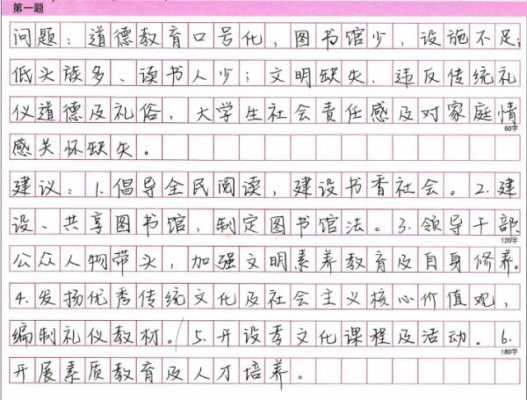 第一题
问题：道德教育口号化，图书馆少，设施不足；
低头族多、读书人少；文明缺失、违反传统礼
仪道德及礼俗，大学生社会责任感及对家庭情
60字
感关怀缺失。
建议：1.倡导全民阅读，建设书香社会。2.建
设、共享图书馆，制定图书馆法。3.领导干部
120字
公众人物带头，加强文明素养教育及自身修养。
4.发扬优秀传统文化及社会主义核心价值观，
编制礼仪教材。5.开设孝文化课程及活动。6.
180字
开展素质教育及人才培养。